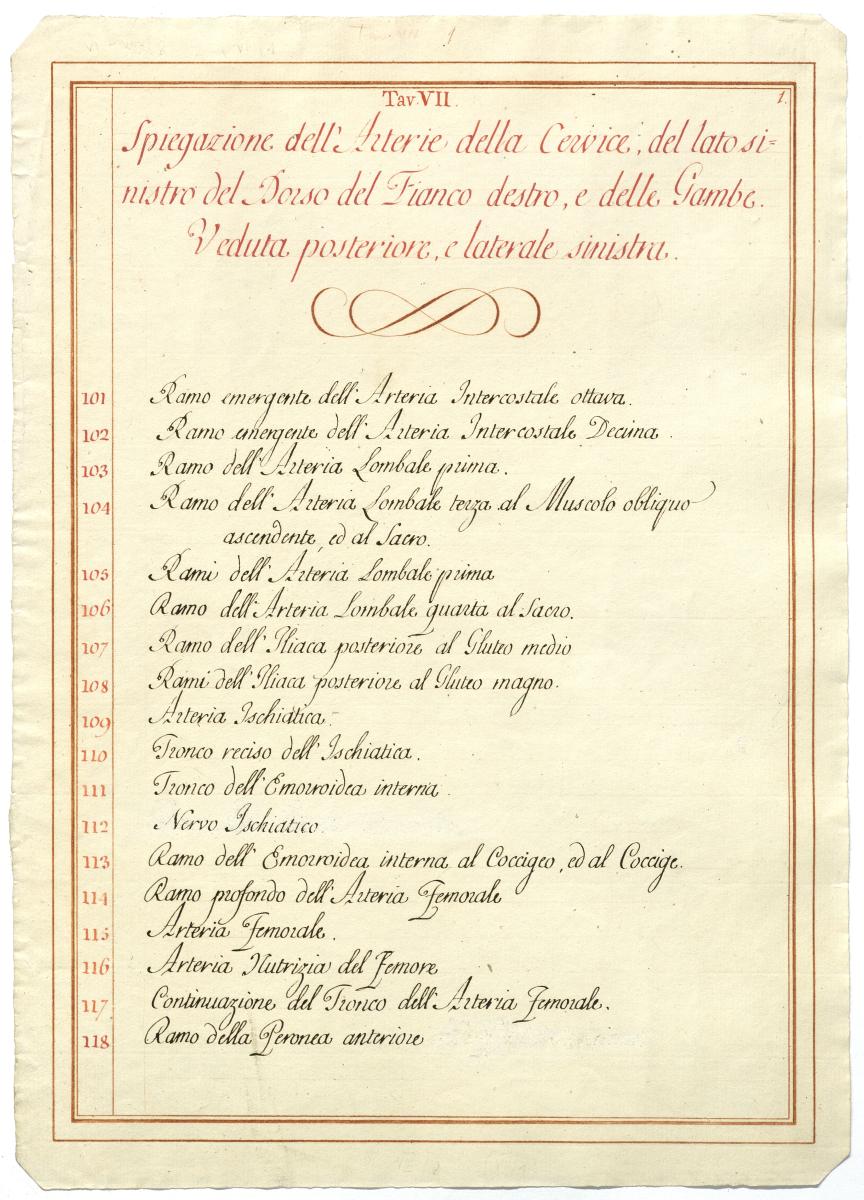 Tav. VII.
1.
Spiegazione dell' Arterie della Cervice, del lato si=
nistro del Dorso del Fianco destro, e delle Gambe.
Veduta posteriore, e laterale sinistra.
101 Ramo emergente dell' Arteria Intercostale ottava.
102 Ramo emergente dell' Arteria Intercostale Decima.
103 Ramo dell' Arteria Lombale prima.
104 Ramo dell' Arteria Lombale terza al Muscolo obliquo
ascendente, ed al Sacro.
105 Rami dell' Arteria Lombale prima
106 Ramo dell' Arteria Lombale quarta al Sacro.
107 Ramo dell' Iliaca posteriore al Gluteo medio
108 Rami dell' Iliaca posteriore al Gluteo magno.
109 Arteria Ischiatica.
110 Tronco reciso dell' Ischiatica.
111 Tronco dell' Emorroidea interna.
112 Nervo Ischiatico.
113 Ramo dell' Emorroidea interna al Coccigeo, ed al Coccige.
114 Ramo profondo dell' Arteria Femorale
115 Arteria Femorale.
116 Arteria Nutrizia del Femore
117 Continuazione del Tronco dell' Arteria Femorale.
118 Ramo della Peronea anteriore